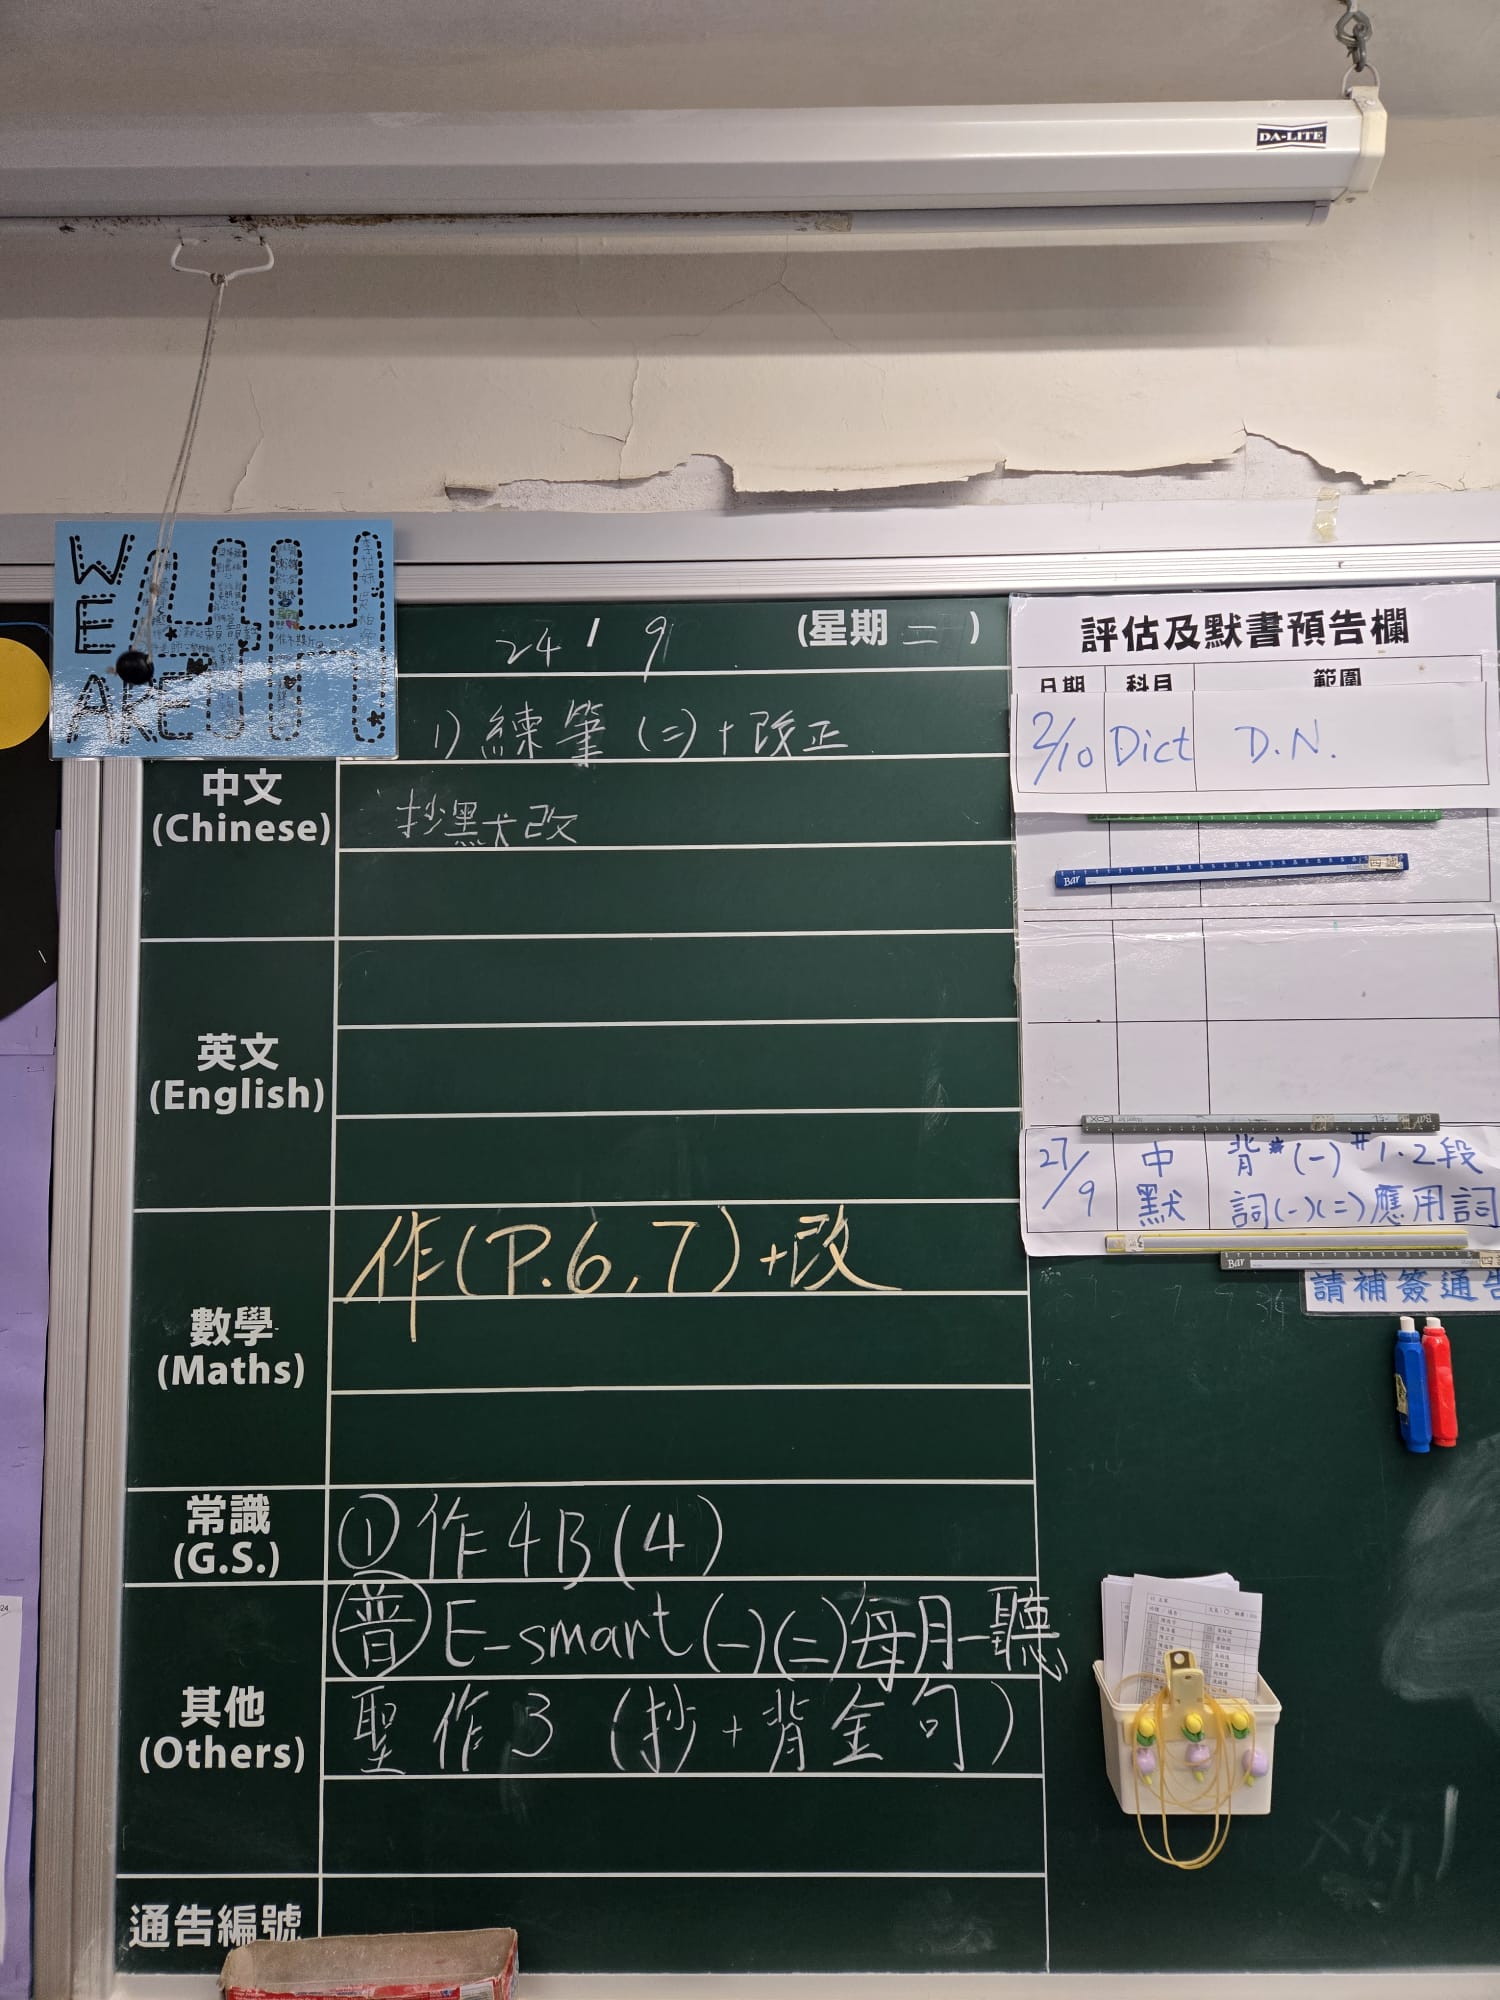 DA-LITE
WE
ARE
24 / 9 (星期 二 )
中文
(Chinese)
1) 練筆 (二) + 改正
抄默改
英文
(English)
數學
(Maths)
作(P.6,7)+改
常識
(G.S.)
① 作4B(4)
其他
(Others)
普 E-smart(一)(二)每月一聽
聖 作 3 (抄+背金句)
通告編號
評估及默書預告欄
日期 科目 範圍
2/10 Dict D.N.
Bar
27/9 中默 背*(一)#1.2段
詞(一)(二)應用詞
Bar
請補簽通告